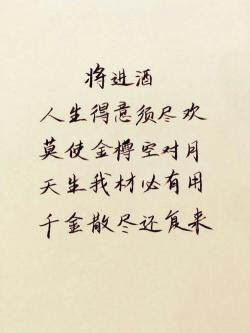 将进酒
人生得意须尽欢
莫使金樽空对月
天生我材必有用
千金散尽还复来